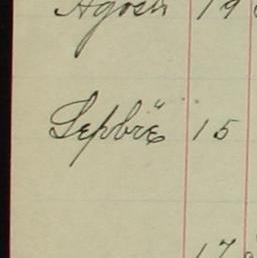 Agosto 19
Sepbrë 15
17